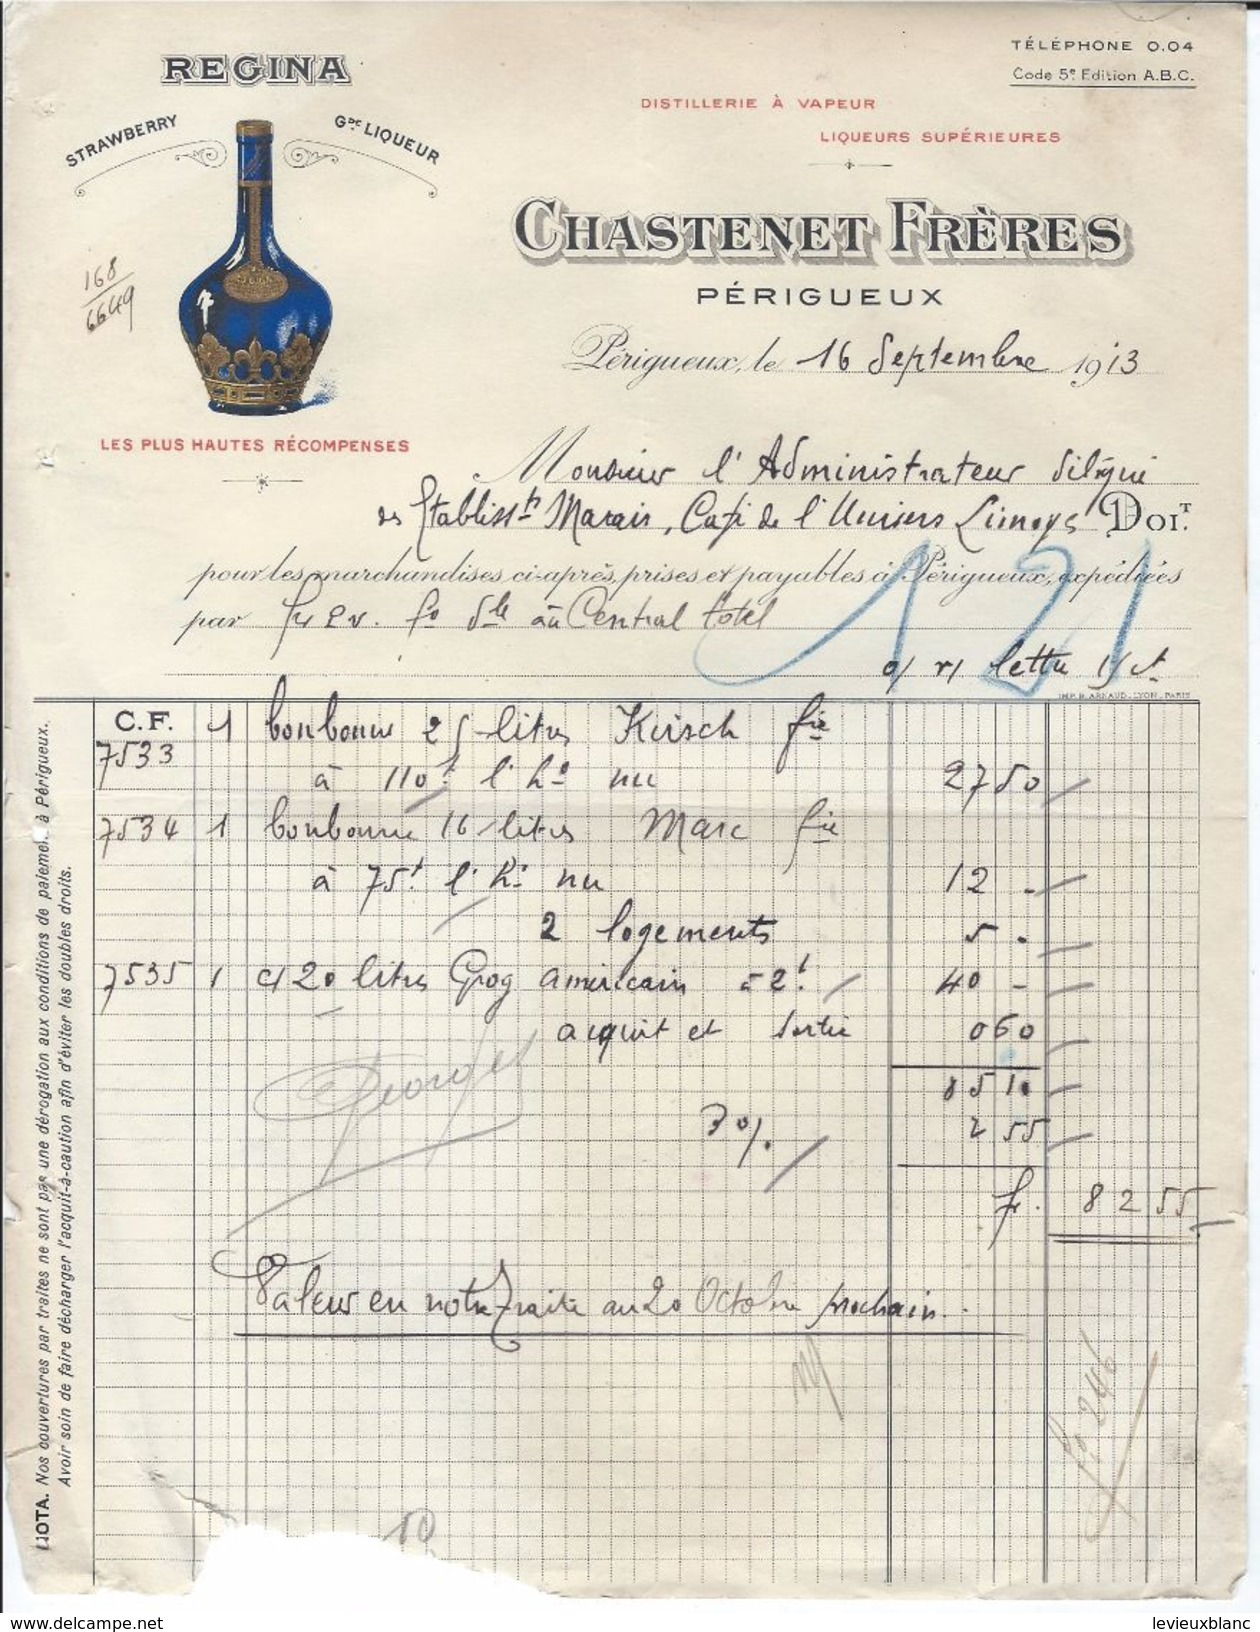 REGINA
STRAWBERRY
Gde LIQUEUR
LES PLUS HAUTES RÉCOMPENSES
168
6649
TÉLÉPHONE 0.04
Code 5e Edition A.B.C.
DISTILLERIE À VAPEUR
LIQUEURS SUPÉRIEURES
CHASTENET FRÈRES
PÉRIGUEUX
Périgueux, le 16 Septembre 1913
Monsieur l'Administrateur délégué
des Establisst Marais, Café de l'Univers Limoges DOIT
pour les marchandises ci-après, prises et payables à Périgueux, expédiées
par au Central Hotel
121
o/ r/ lettre
IMP. B. ARNAUD. LYON. PARIS
C.F. 1 bonbonne 25 litres Kirsch fie
7533 à 110f l'ho nu 27 50
7534 1 bonbonne 16 litres Marc fie
à 75f l'ho nu 12 -
2 logements 5 -
7535 1 c/ 20 litres Grog américain à 2f 40 -
acquit et sortie 0 60
85 10
3 %. 2 55
fr. 82 55
Georges
Valeur en notre traite au 20 Octobre prochain.
fo 246
10
NOTA. Nos couvertures par traites ne sont pas une dérogation aux conditions de paiemet. à Périgueux.
Avoir soin de faire décharger l'acquit-à-caution afin d'éviter les doubles droits.
delcampe.net
levieuxblanc